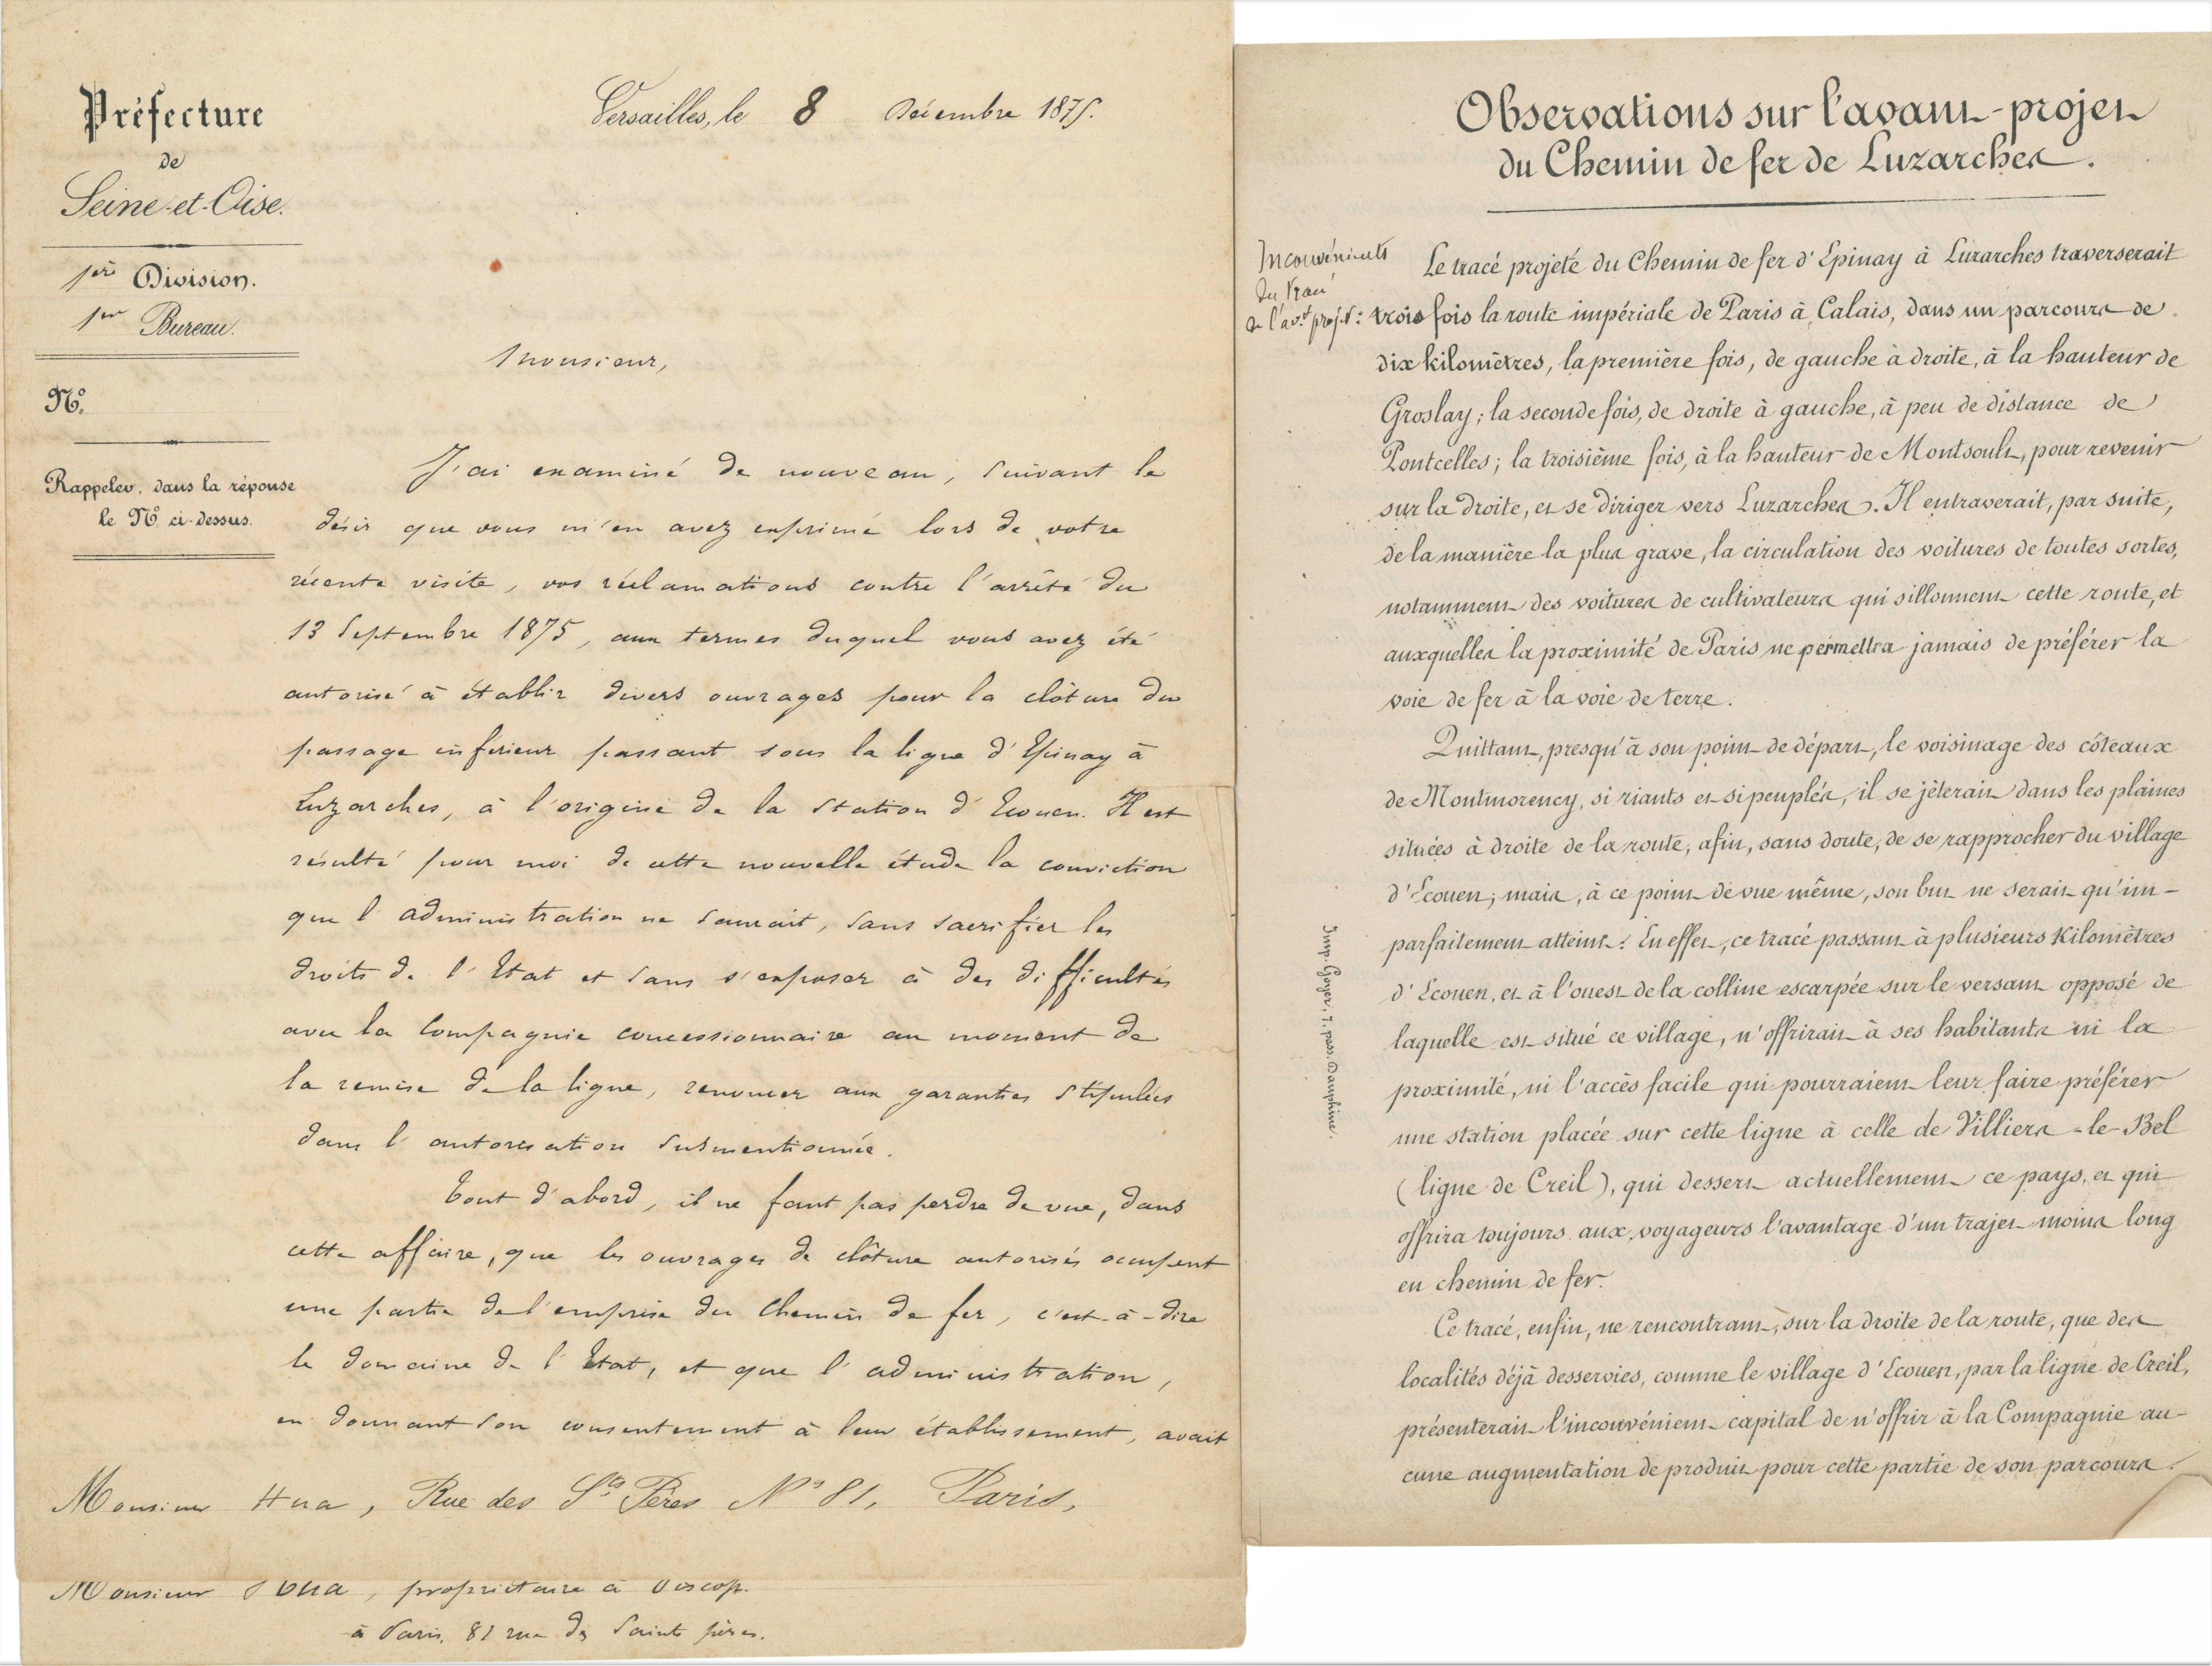 Préfecture
de
Seine-et-Oise.
1ère Division.
1er Bureau.
No.
Rappeler, dans la réponse
le No. ci-dessus.
Versailles, le 8 Décembre 1875.
Monsieur,
J'ai examiné de nouveau, suivant le
désir que vous m'en avez exprimé lors de votre
récente visite, vos réclamations contre l'arrêté du
13 Septembre 1875, aux termes duquel vous avez été
autorisé à établir divers ouvrages pour la clôture du
passage inférieur passant sous la ligne d'Epinay à
Luzarches, à l'origine de la Station d'Ecouen. Il est
résulté pour moi de cette nouvelle étude la conviction
que l'administration ne saurait, sans sacrifier les
droits de l'Etat et sans s'exposer à des difficultés
avec la Compagnie concessionnaire au moment de
la remise de la ligne, renoncer aux garanties stipulées
dans l'autorisation susmentionnée.
Tout d'abord, il ne faut pas perdre de vue, dans
cette affaire, que les ouvrages de clôture autorisés occupent
une partie de l'emprise du Chemin de fer, c'est-à-dire
le domaine de l'Etat, et que l'administration,
en donnant son consentement à leur établissement, avait
Monsieur Hua, Rue des Sts Pères No 81, Paris,
Monsieur Hua, propriétaire à
à Paris, 81 rue des Saints pères.
Observations sur l'avant-projet
du Chemin de fer de Luzarches.
Inconvénients
du tracé
de l'avt projet:
Le tracé projeté du Chemin de fer d'Epinay à Luzarches traverserait
trois fois la route impériale de Paris à Calais, dans un parcours de
dix kilomètres, la première fois, de gauche à droite, à la hauteur de
Groslay; la seconde fois, de droite à gauche, à peu de distance de
Pontcelles; la troisième fois, à la hauteur de Montsoult, pour revenir
sur la droite, et se diriger vers Luzarches. Il entraverait, par suite,
de la manière la plus grave, la circulation des voitures de toutes sortes,
notamment des voitures de cultivateurs qui sillonnent cette route, et
auxquelles la proximité de Paris ne permettra jamais de préférer la
voie de fer à la voie de terre.
Quittant, presqu'à son point de départ, le voisinage des côteaux
de Montmorency, si riants et si peuplés, il se jèterait dans les plaines
situées à droite de la route, afin, sans doute, de se rapprocher du village
d'Ecouen; mais, à ce point de vue même, son but ne serait qu'im-
parfaitement atteint. En effet, ce tracé passant à plusieurs Kilomètres
d'Ecouen, et à l'ouest de la colline escarpée sur le versant opposé de
laquelle est situé ce village, n'offrirait à ses habitants ni la
proximité, ni l'accès facile qui pourraient leur faire préférer
une station placée sur cette ligne à celle de Villiers-le-Bel
(ligne de Creil), qui dessert actuellement ce pays, et qui
offrira toujours aux voyageurs l'avantage d'un trajet moins long
en chemin de fer.
Ce tracé, enfin, ne rencontrant, sur la droite de la route, que des
localités déjà desservies, comme le village d'Ecouen, par la ligne de Creil,
présenterait l'inconvénient capital de n'offrir à la Compagnie au-
cune augmentation de produit pour cette partie de son parcours.
Imp. Goyer, 7. pass. Dauphine.